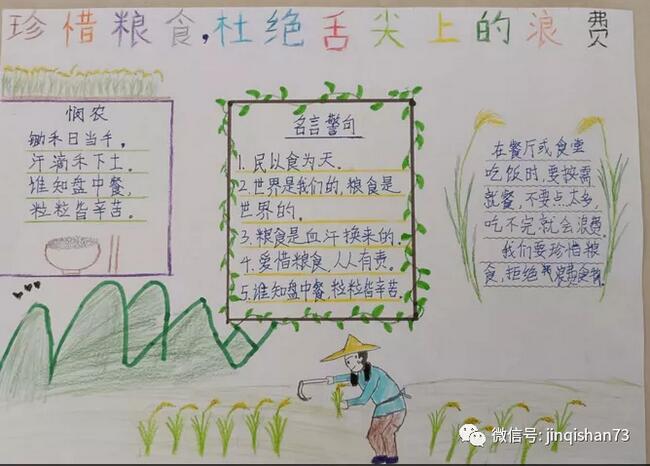 珍惜粮食,杜绝舌尖上的浪费
悯农
锄禾日当午,
汗滴禾下土。
谁知盘中餐,
粒粒皆辛苦。
名言警句
1. 民以食为天。
2. 世界是我们的,粮食是
世界的。
3. 粮食是血汗换来的。
4. 爱惜粮食,人人有责。
5. 谁知盘中餐,粒粒皆辛苦。
在餐厅或食堂
吃饭时,要按需
就餐,不要点太多,
吃不完就会浪费。
我们要珍惜粮
食,拒绝浪费食物。
微信号: jinqishan73